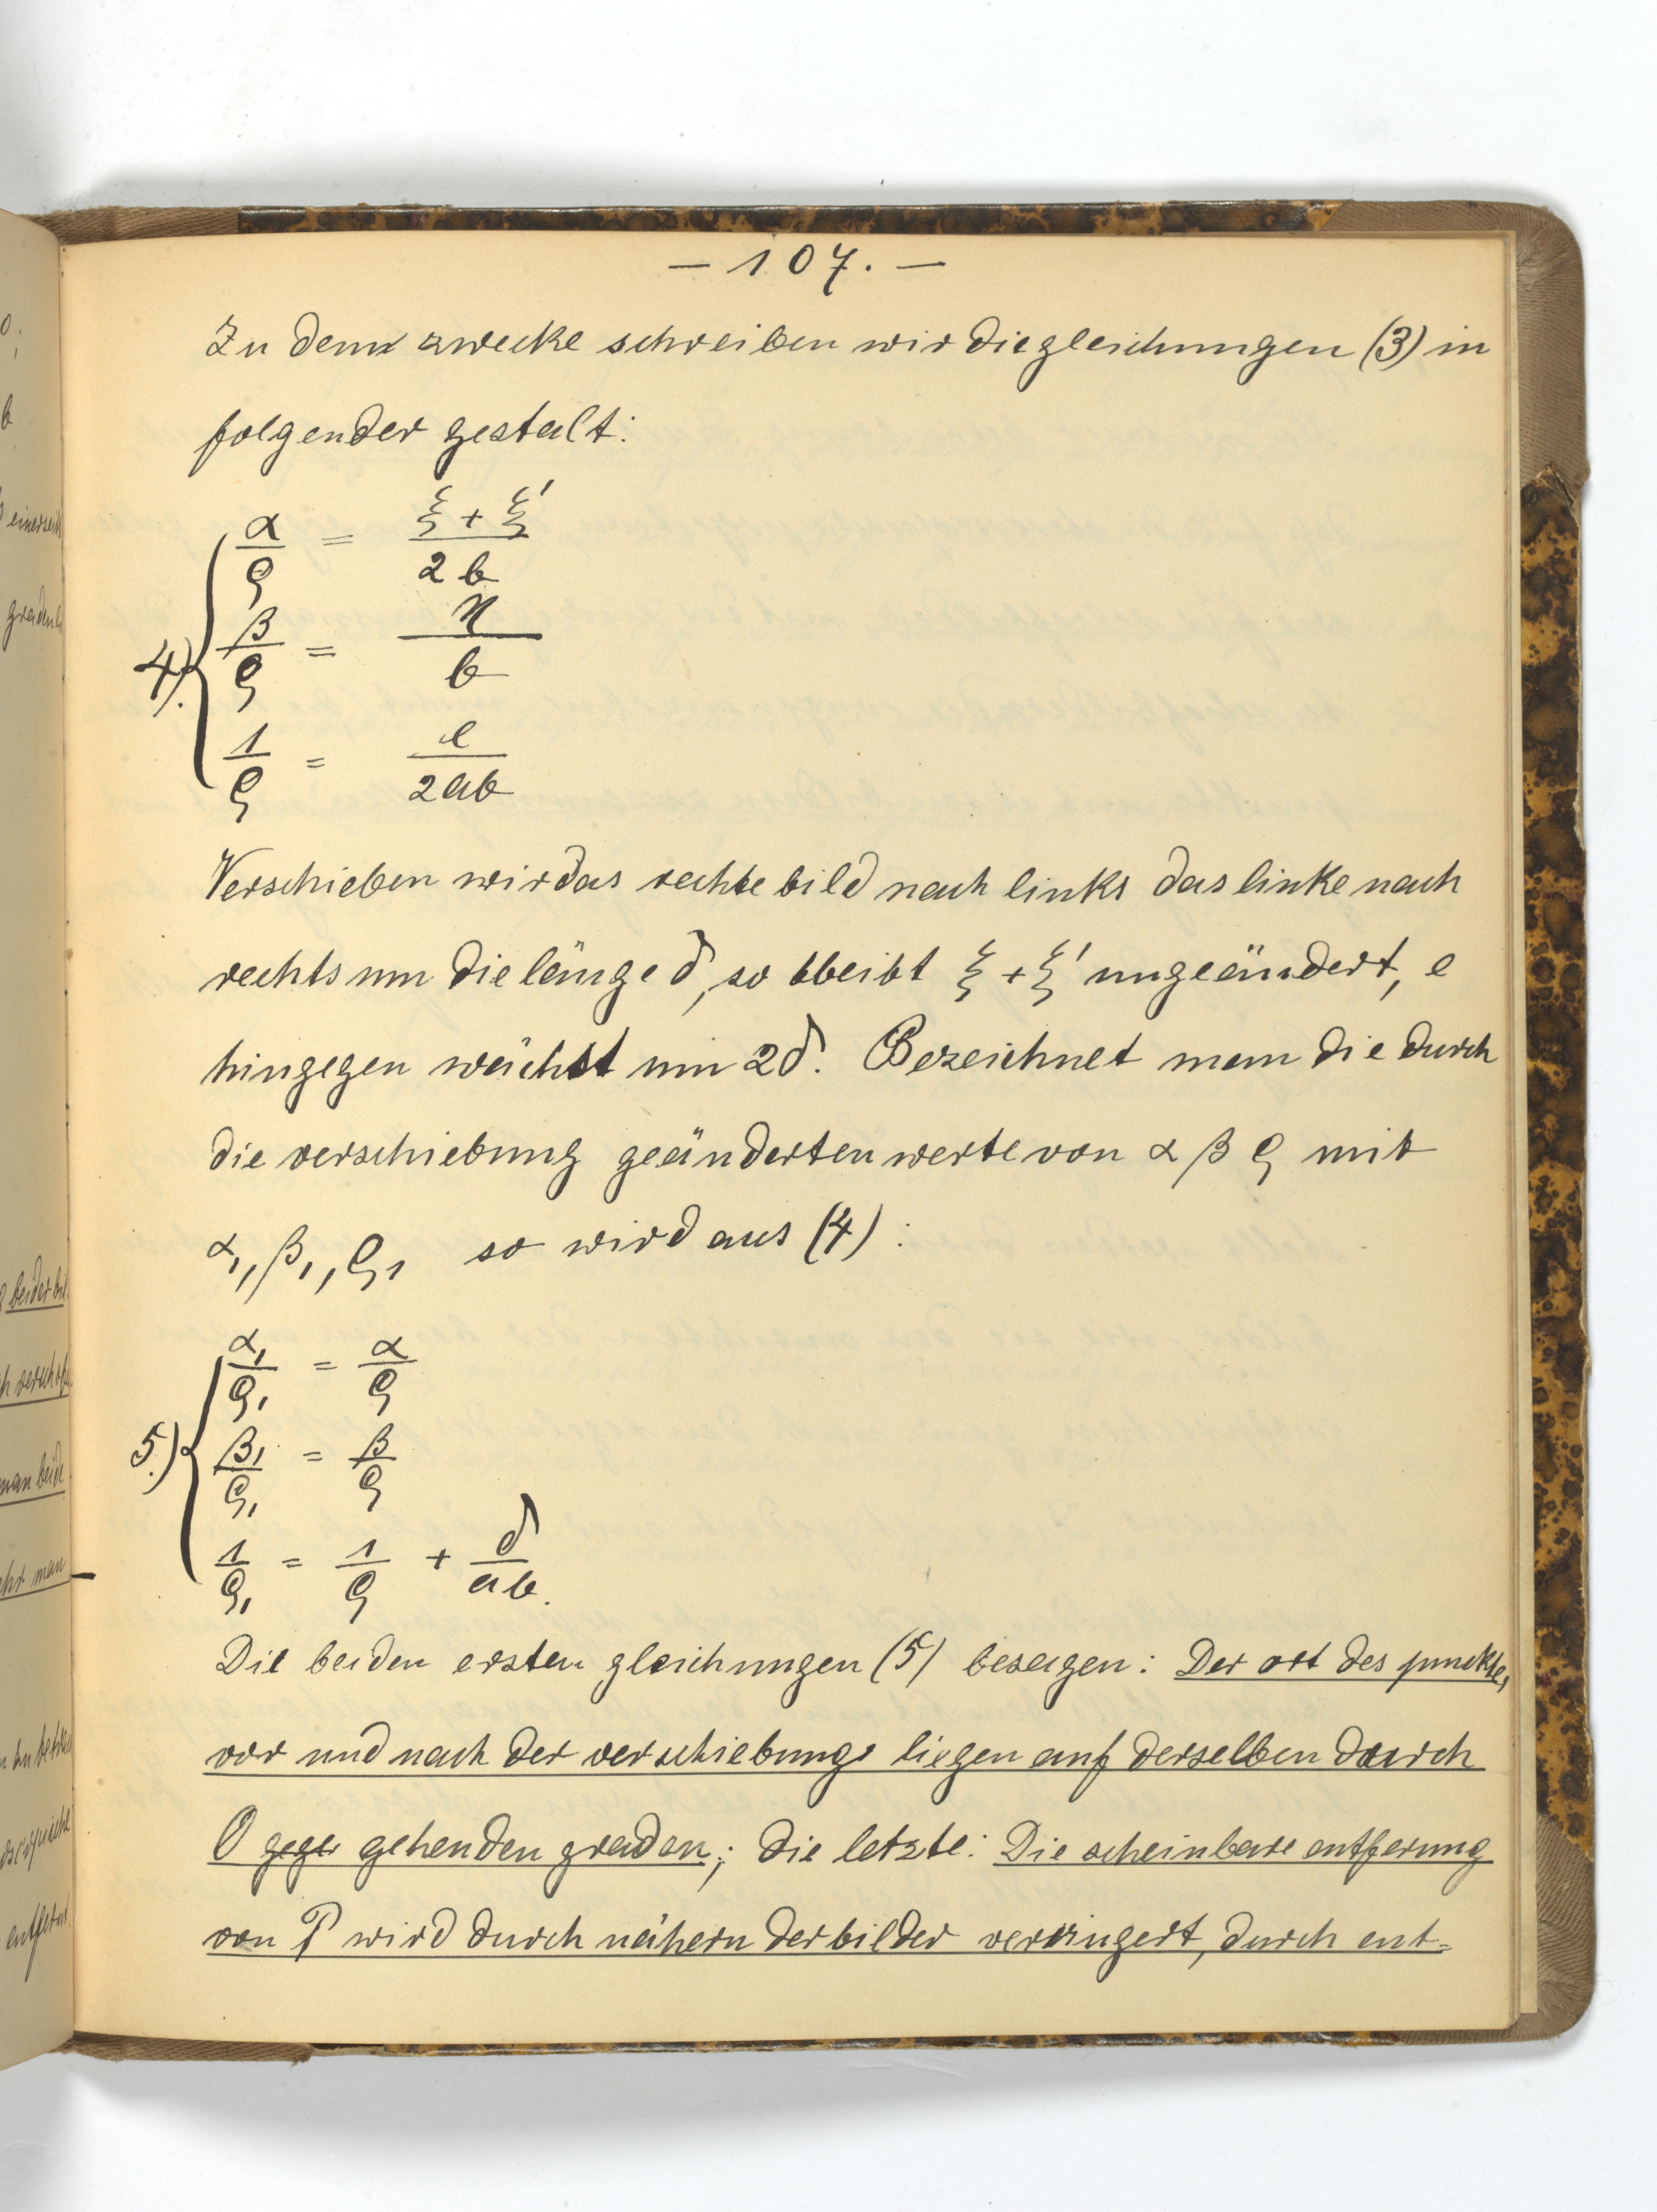 — 107. —
Zu dem zwecke schreiben wir die gleichungen (3) in
folgender gestalt:
α/ϱ = (ξ + ξ')/2b
4). β/ϱ = η/b
1/ϱ = e/2ab
Verschieben wir das rechte bild nach links das linke nach
rechts um die länge δ, so bleibt ξ + ξ' ungeändert, e
hingegen wächst um 2δ. Bezeichnet man die durch
die verschiebung geänderten werte von α β ϱ mit
α₁, β₁, ϱ₁ so wird aus (4) :
α₁/ϱ₁ = α/ϱ
5.) β₁/ϱ₁ = β/ϱ
1/ϱ₁ = 1/ϱ + δ/ab.
Die beiden ersten gleichungen (5) besagen: Der ort des punckts,
vor und nach der verschiebung liegen auf derselben durch
O gehenden graden; die letzte: Die scheinbare entferung
von P wird durch nähern der bilder verringert, durch ent-